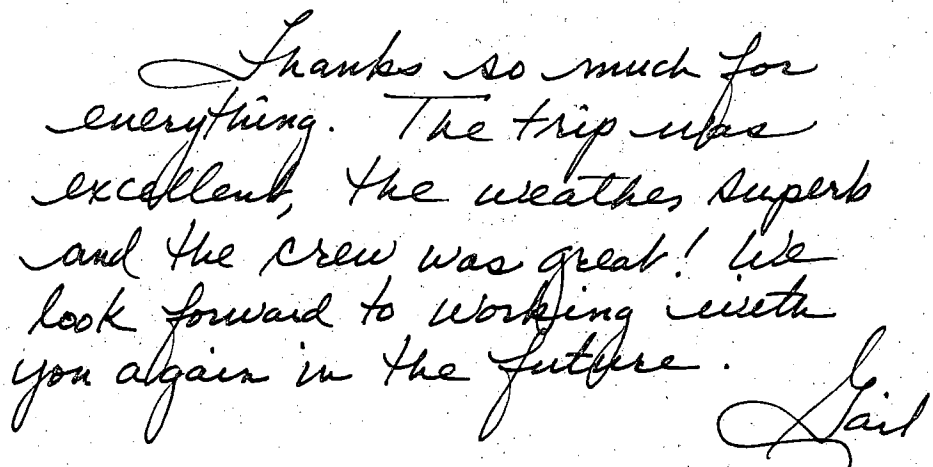 Thanks so much for
everything. The trip was
excellent, the weather superb
and the crew was great! We
look forward to working with
you again in the future.
Gail